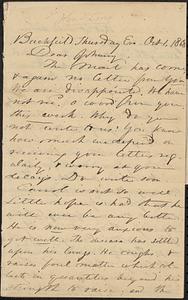 Buckfield, Thursday Eve. Oct 1, 186
Dear
The Mail has come
& again no letter from you
We are disappointed. We have
not recd a word from you
this week. Why do you
not write to us? You
know how much we depend on
receiving your letters reg
ularly & along as you
do. Do write soon
is not so well
Little hope is had that he
will ever be any better.
He is now very anxious to
get well. The disease has settled
upon his lungs. He coughs &
raises putrid matter which ol
lects in quantities beyond his
strength to raise, and the